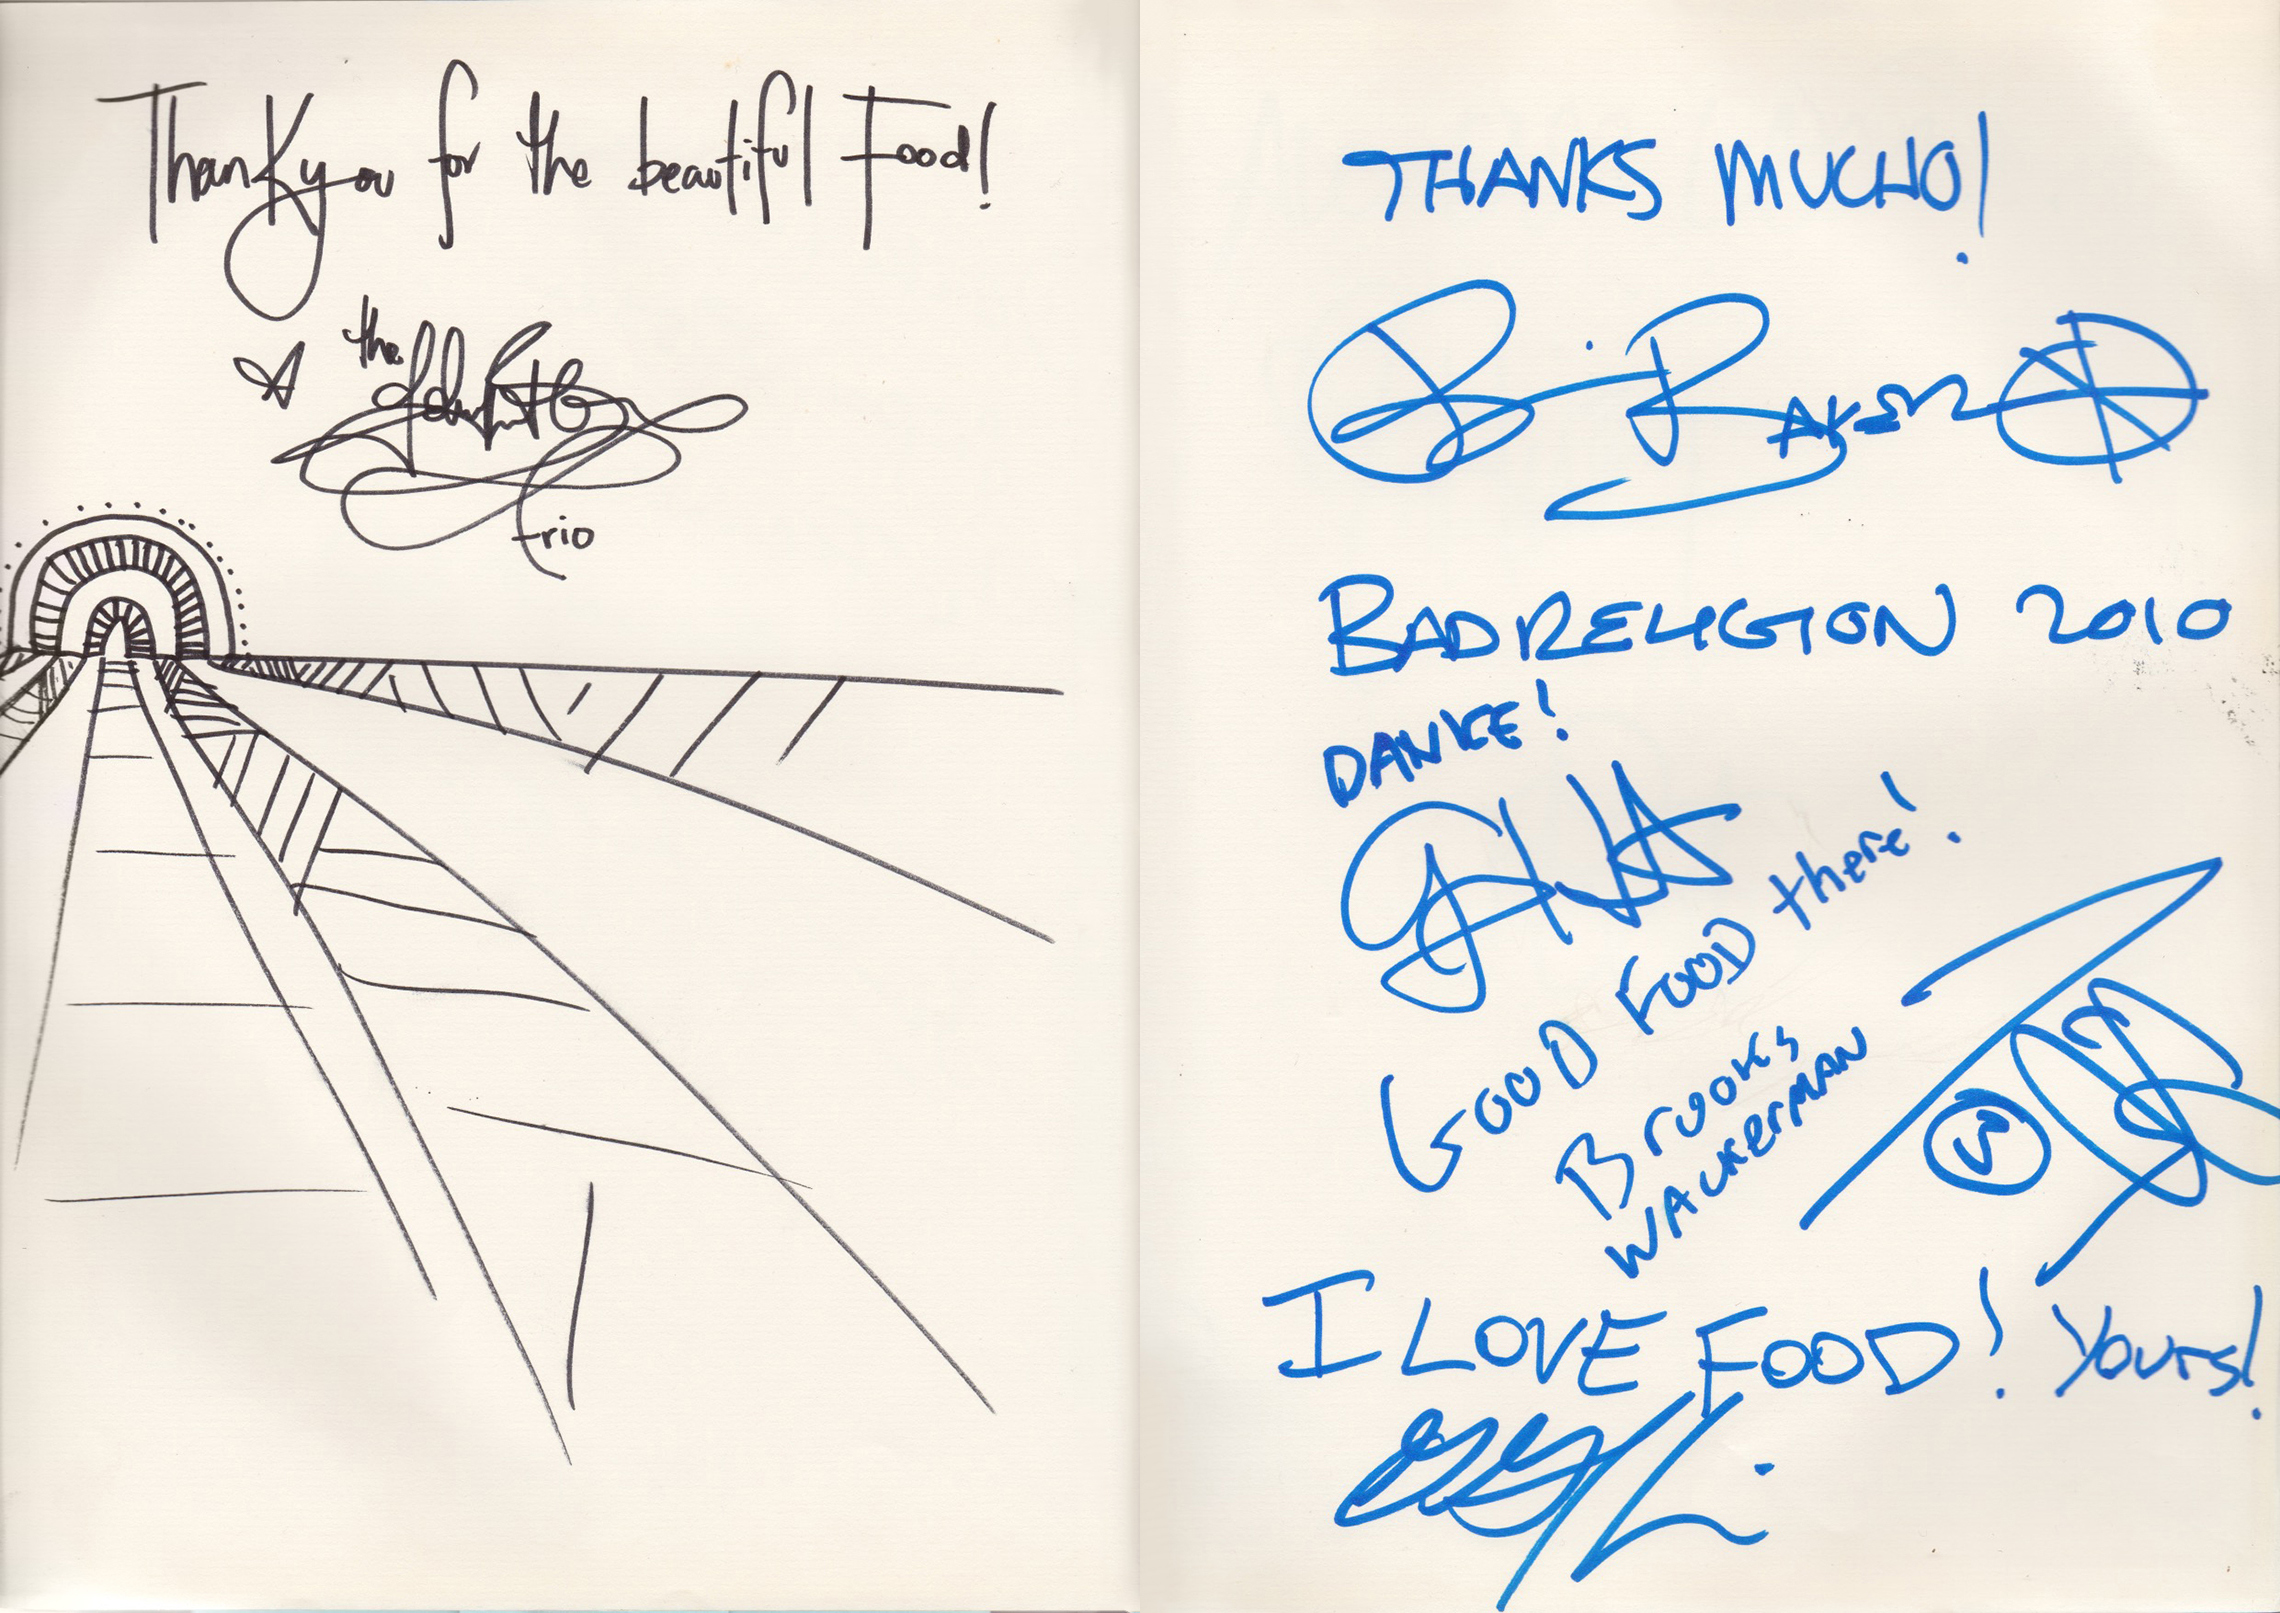 Thank you for the beautiful Food!
the John Butler
trio
THANKS MUCHO!
Brian BAKER
BAD RELIGION 2010
DANKE!
GOOD FOOD there!
Brooks
WACKERMAN
I LOVE FOOD! Yours!